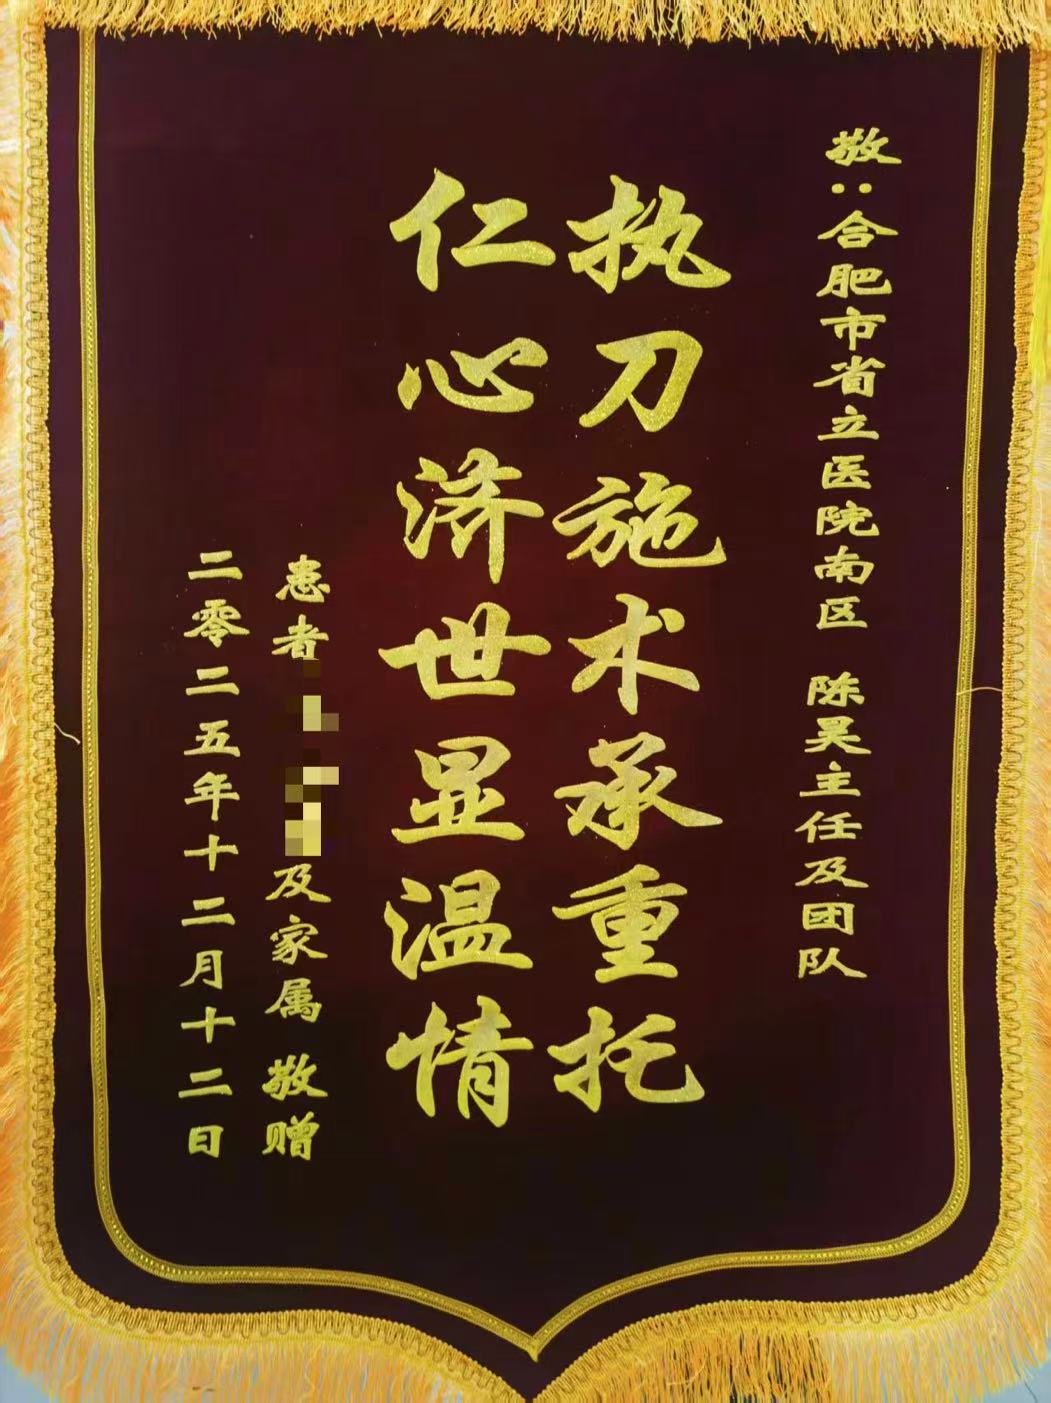 敬：合肥市省立医院南区 陈昊主任及团队
执刀施术承重托
仁心济世显温情
患者及家属 敬赠
二零二五年十二月十二日